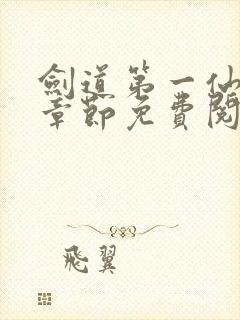 劍道第一仙
章節免費閱
飛翼